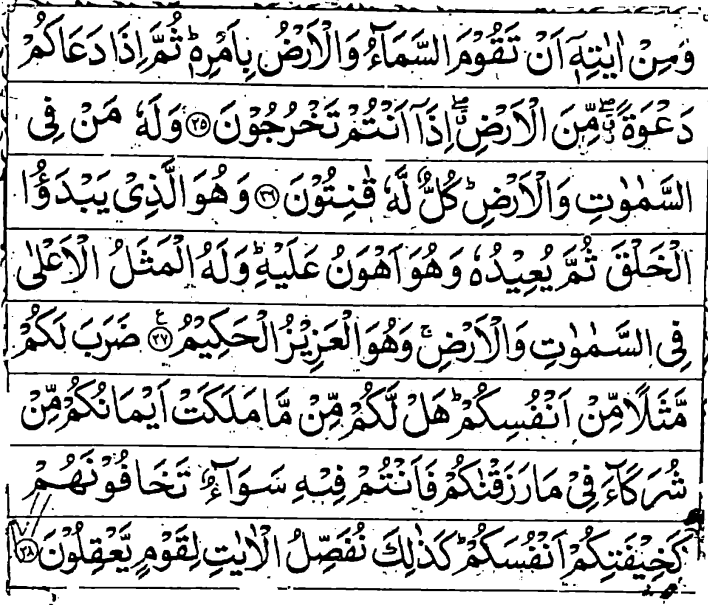 وَمِنْ اٰيٰتِهٖۤ اَنْ تَقُوْمَ السَّمَآءُ وَالْاَرْضُ بِاَمْرِهٖ ؕ ثُمَّ اِذَا دَعَاكُمْ
دَعْوَةً ۖۗ مِّنَ الْاَرْضِ ۖۗ اِذَاۤ اَنْتُمْ تَخْرُجُوْنَ ﴿۲۵﴾ وَلَهٗ مَنْ فِى
السَّمٰوٰتِ وَالْاَرْضِ ؕ كُلٌّ لَّهٗ قٰنِتُوْنَ ﴿۲۶﴾ وَهُوَ الَّذِىْ يَبْدَؤُا
الْخَلْقَ ثُمَّ يُعِيْدُهٗ وَهُوَ اَهْوَنُ عَلَيْهِ ؕ وَلَهُ الْمَثَلُ الْاَعْلٰى
فِى السَّمٰوٰتِ وَالْاَرْضِ ۚ وَهُوَ الْعَزِيْزُ الْحَكِيْمُ ﴿۲۷﴾ ع ضَرَبَ لَكُمْ
مَّثَلًا مِّنْ اَنْفُسِكُمْ ؕ هَلْ لَّكُمْ مِّنْ مَّا مَلَكَتْ اَيْمَانُكُمْ مِّنْ
شُرَكَآءَ فِىْ مَا رَزَقْنٰكُمْ فَاَنْتُمْ فِيْهِ سَوَآءٌ تَخَافُوْنَهُمْ
كَخِيْفَتِكُمْ اَنْفُسَكُمْ ؕ كَذٰلِكَ نُفَصِّلُ الْاٰيٰتِ لِقَوْمٍ يَّعْقِلُوْنَ ﴿۲۸﴾